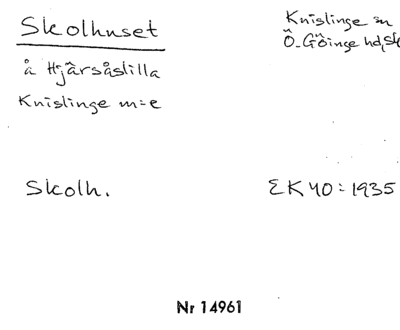 Skolhuset
Knislinge sn
Ö. Göinge hd, Sk
å Hjärsåslilla
Knislinge m:e
Skolh.
EK 40: 1935
Nr 14961